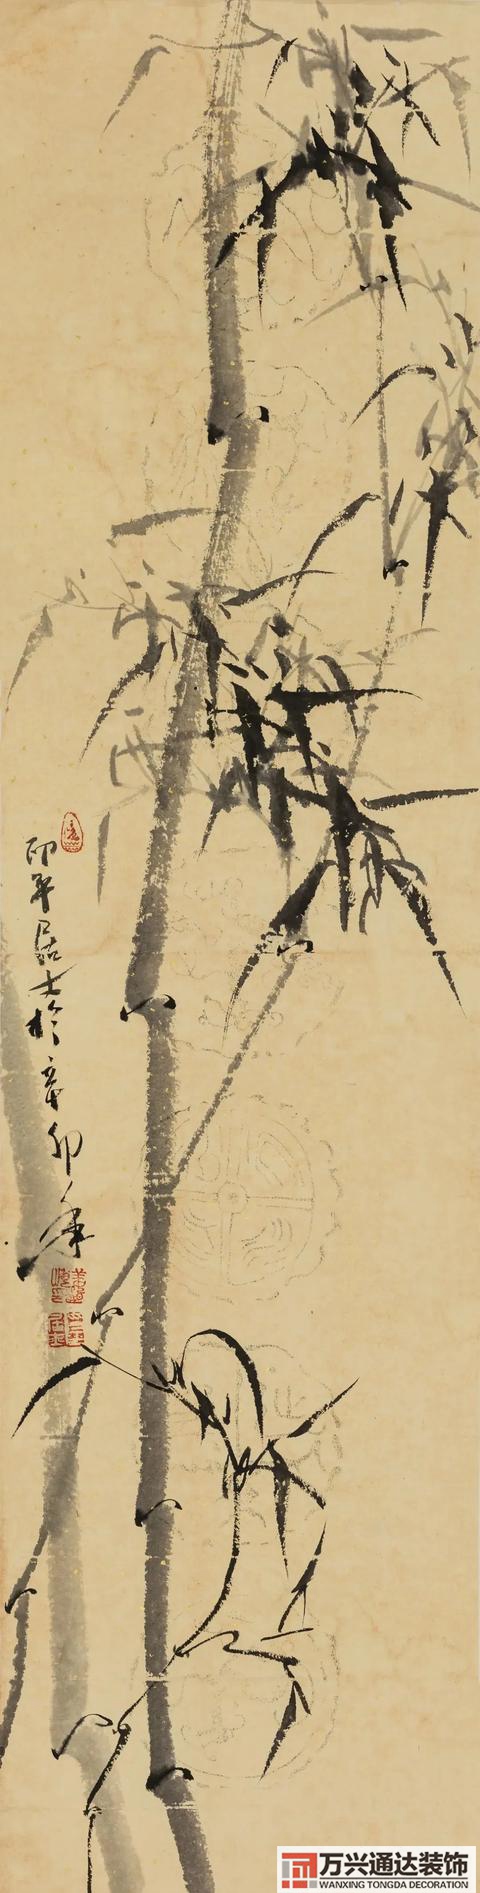 卯年居士於辛卯年
万兴通达装饰
WANXING TONGDA DECORATION